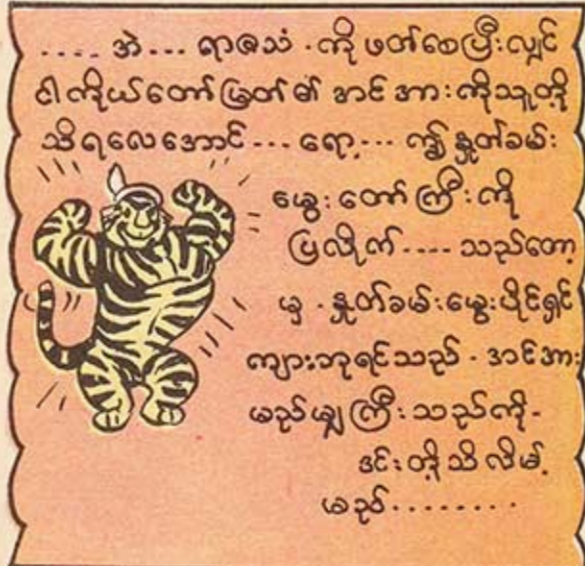 .... အဲ ... ရာဇသံ . ကို ဖတ်စေပြီးလျှင်
ငါကိုယ်တော်မြတ်၏ အင်အားကိုသူတို့
သိရလေအောင် ... ရော့ ... ဤနှုတ်ခမ်း
မွေးတော်ကြီးကို
ပြလိုက် .... သည်တော့
မှ . နှုတ်ခမ်းမွေးပိုင်ရှင်
ကျားဘုရင်သည် . အင်အား
မည်မျှကြီးသည်ကို -
ဒင်းတို့သိလိမ့်
မည် ........